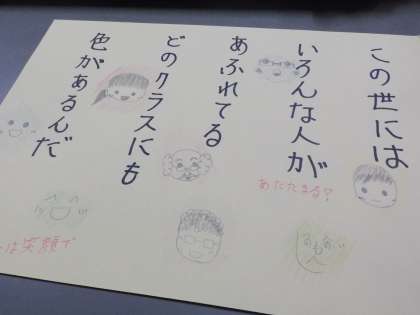 この世には
いろんな人が
あふれてる
どのクラスにも
色があるんだ
あたたまる?
は笑顔で